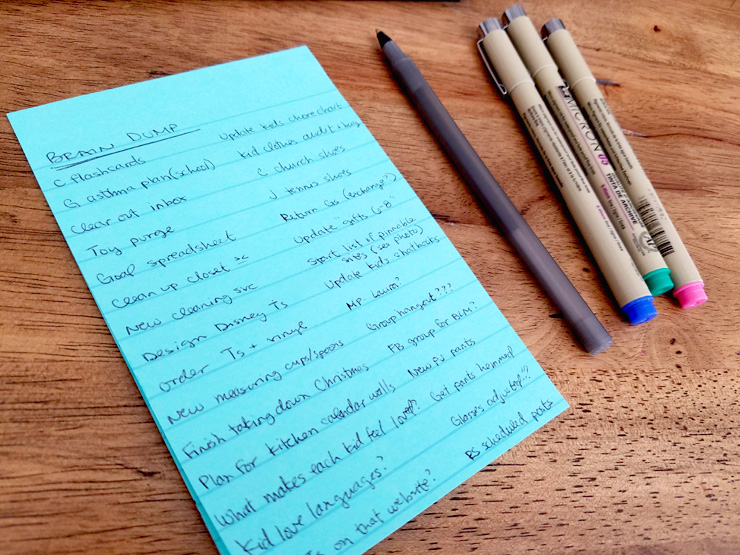 BRAIN DUMP
C flashcards
G asthma plan (school)
Clear out inbox
Toy purge
Goal spreadsheet
Clean up closet
New cleaning svc
Design Disney Ts
Order Ts + vinyl
New measuring cups/spoons
Finish taking down Christmas
Plan for kitchen calendar walls
What makes each kid feel loved?
Kid love languages?
on that website?
Update kids chore chart
Kid clothes audit +
C church shoes
J tennis shoes
Return (exchange?)
Update gifts 6-8
Start list of pinnable
(see photo)
Update kids
MP
Group hangout???
FB group for BLM?
New PJ pants
Get pants hemmed
Glasses adjusted!!!
BS scheduled posts
MICRON 05